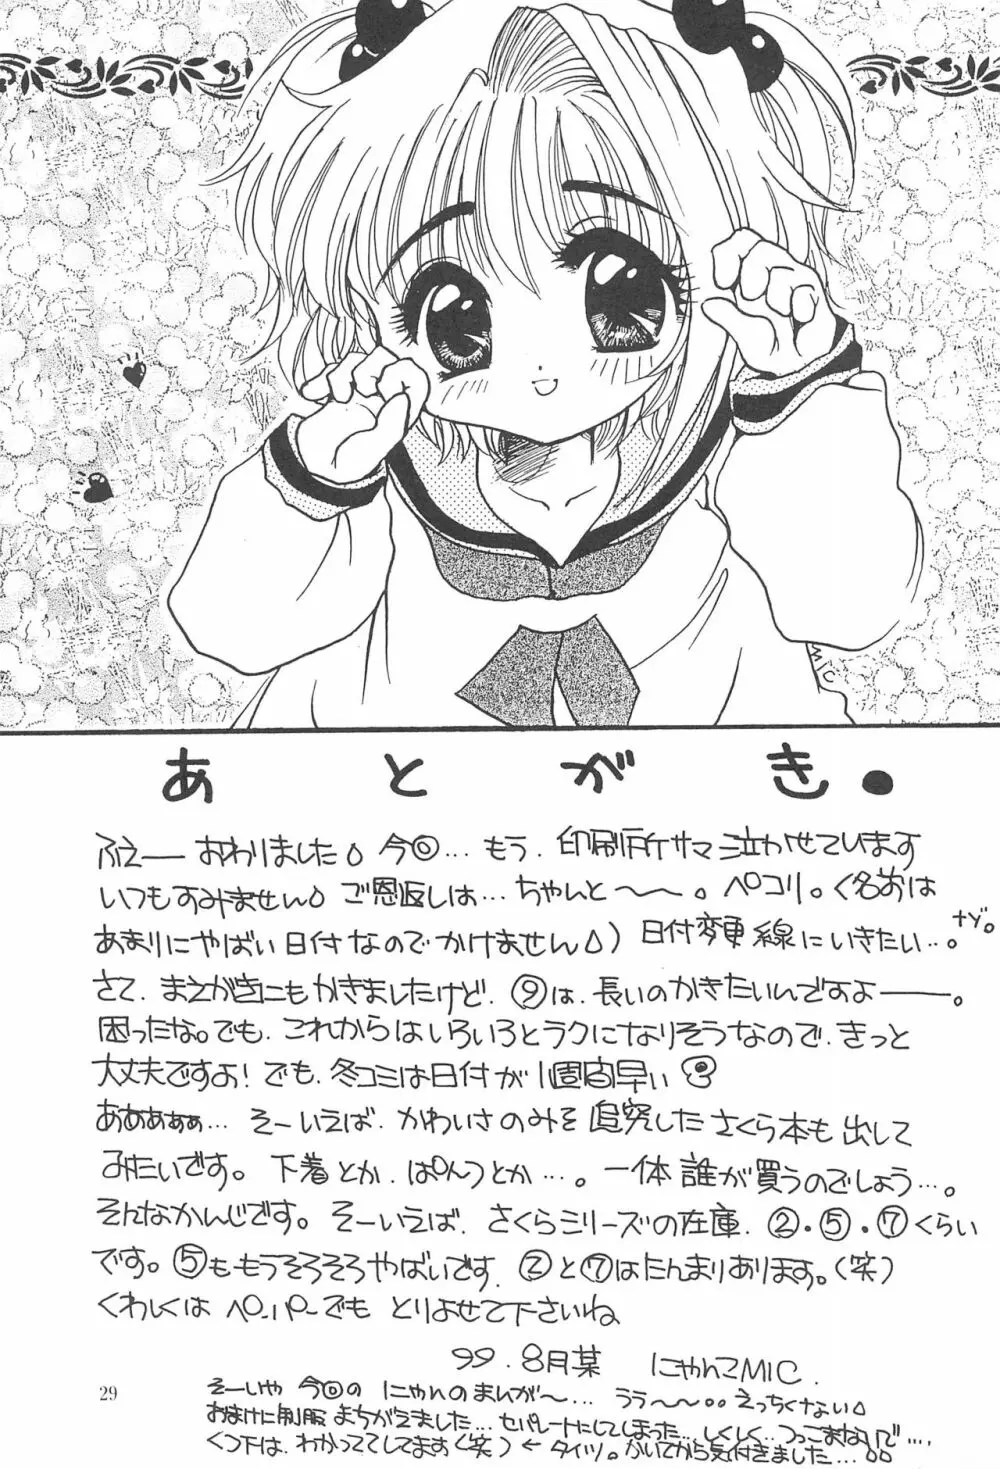 MIC
あとがき.
ふえーー おわりました 今回... もう、印刷所サマ泣かせています
いつもすみません ご恩返しは... ちゃんと〜〜。ペコリ。(名前は
あまりにやばい日付なのでかけません) 日付変更線にいきたい...。ナゾ。
さて、まえがきにもかきましたけど、⑨は、長いのかきたいんですよーー。
困ったな。でも、これからはいろいろとラクになりそうなので、きっと
大丈夫ですよ! でも、冬コミは日付が1週間早い
ああああぁ... そーいえば、かわいさのみを追究したさくら本も出して
みたいです。下着とか、ぱんつとか...。一体誰が買うのでしょう...。
そんなかんじです。そーいえば、さくらシリーズの在庫、②・⑤・⑦くらい
です。⑤ももうそろそろやばいです、②と⑦はたんまりあります。(笑)
くわしくは ペーパーでも とりよせて下さいね
99.8月某 にゃんこMIC.
29
そーいや 今回の にゃんのまんが〜... ララ〜〜。。えっちくない
おまけに制服 まちがえました... セパレートにしてしまった...しくしく..つっこまないで....
くつ下は、わかっててしてます(笑) ← タイツ。かいてから気付きました...